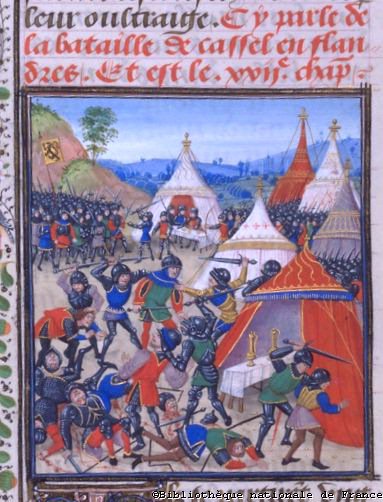 leur oultraige. Cy parle de
la bataille de cassel en flan
dres. Et est le .xvij.e chap
©Bibliothèque nationale de France